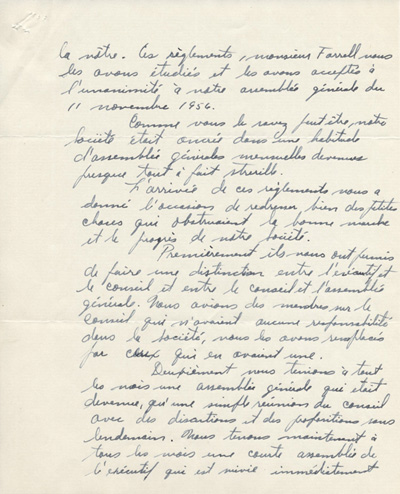 la nôtre. Ces règlements, monsieur Farrell nous
les avons étudiés et les avons acceptés à
l'unanimité, à notre assemblée générale du
11 novembre 1956.
Comme vous le savez peut-être, notre
Société était ancrée dans une habitude
d'assemblées générales mensuelles devenues
presque tout à fait stérile.
L'arrivée de ces règlements nous a
donné l'occasion de redresser bien des petites
choses qui obstruaient la bonne marche
et le progrès de notre Société.
Premièrement ils nous ont permis
de faire une distinction entre l'exécutif et
le conseil et entre le conseil et l'assemblée
générale. Nous avions des membres sur le
Conseil qui n'avaient aucune responsabilité
dans la société, nous les avons remplacés
par ceux qui en avaient une.
Deuxièment nous tenions à tout
les mois une assemblée générale qui était
devenue, qu'une simple réunion du conseil
avec des discutions et des propositions sans
lendemain. Nous tenons maintenant à
tous les mois une courte assemblée de
l'exécutif qui est suivie immédiatement